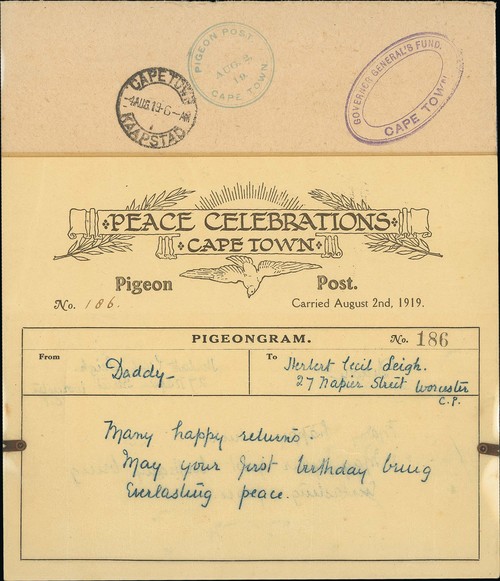 PIGEON POST
AUG. 2.
19.
CAPE TOWN.
CAPETOWN
4 AUG 19·6-AM
KAAPSTAD
GOVERNOR GENERAL'S FUND.
CAPE TOWN
PEACE CELEBRATIONS
CAPE TOWN
Pigeon Post.
No. 186. Carried August 2nd, 1919.
PIGEONGRAM. No. 186
From Daddy To Herbert Cecil Leigh.
27 Napier Street Worcester
C.P.
Many happy returns.
May your first birthday bring
Everlasting peace.